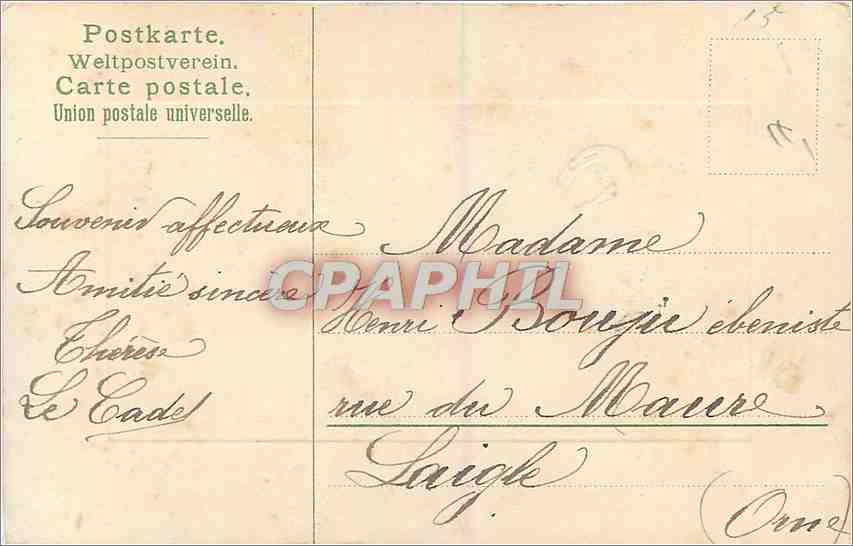 Postkarte.
Weltpostverein.
Carte postale.
Union postale universelle.
15
Souvenir affectueux
Amitié sincère
Thérèse
Le Cadet
CPAPHIL
Madame
Henri Bouju ébeniste
rue du Maure
Laigle
(Orne)